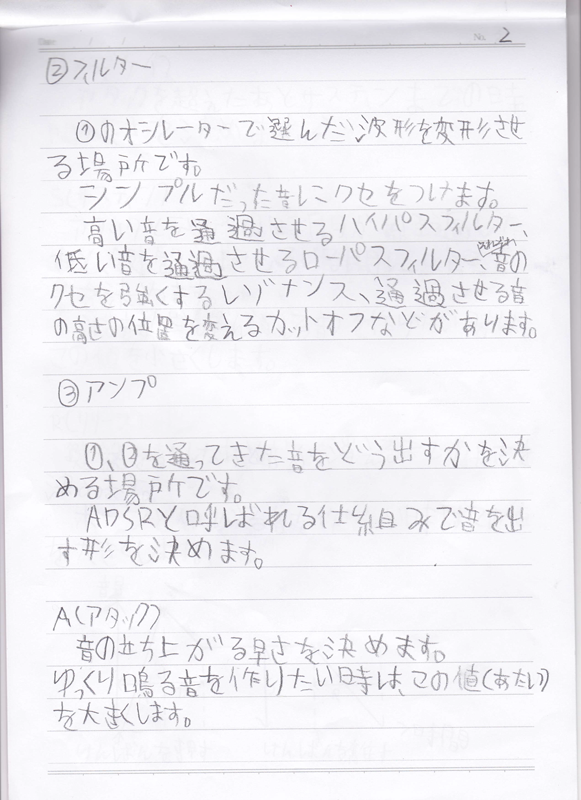 No. 2
②フィルター
①のオシレーターで選んだ波形を変形させ
る場所です。
シンプルだった音にクセをつけます。
高い音を通過させるハイパスフィルター、
低い音を通過させるローパスフィルター、音の
クセを強くするレゾナンス、通過させる音
の高さの位置を変えるカットオフなどがあります。
③アンプ
①、②を通ってきた音をどう出すかを決
める場所です。
ADSRと呼ばれる仕組みで音を出
す形を決めます。
A(アタック)
音の立ち上がる早さを決めます。
ゆっくり鳴る音を作りたい時は、この値(あたい)
を大きくします。